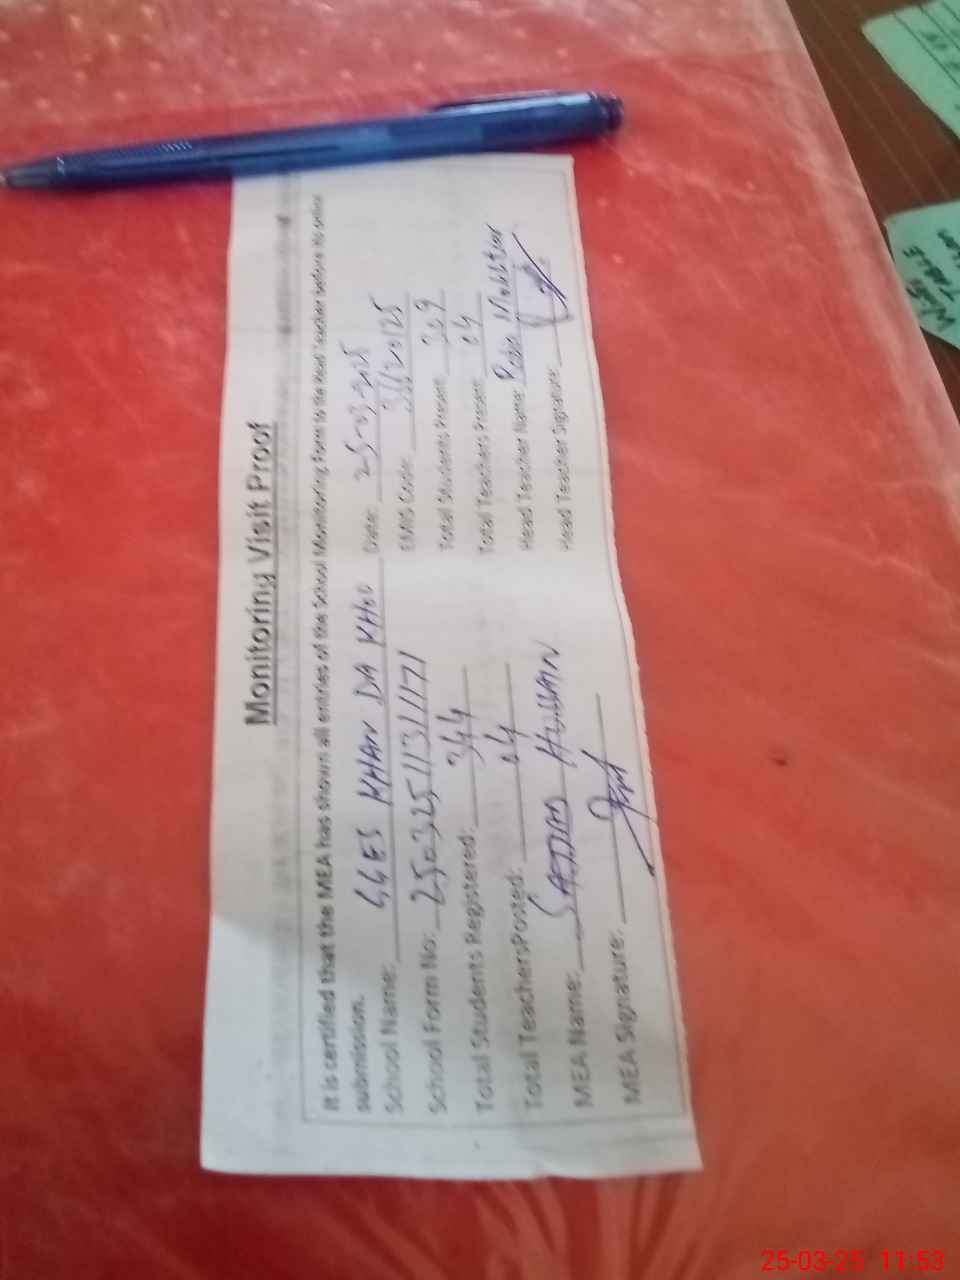 Monitoring Visit Proof
It is certified that the MEA has shown all entries of the School Monitoring Form to the Head Teacher before its online
submission.
School Name: GGES KHAN DA KHOO Date: 25-03-2025
School Form No: 250325113111171 EMIS Code:
Total Students Registered: 344 Total Students Present: 309
Total TeachersPosted: 04 Total Teachers Present: 04
MEA Name: SADDAM HUSSAIN Head Teacher Name:
MEA Signature: Head Teacher Signature:
TABLE
25-03-25 11:53